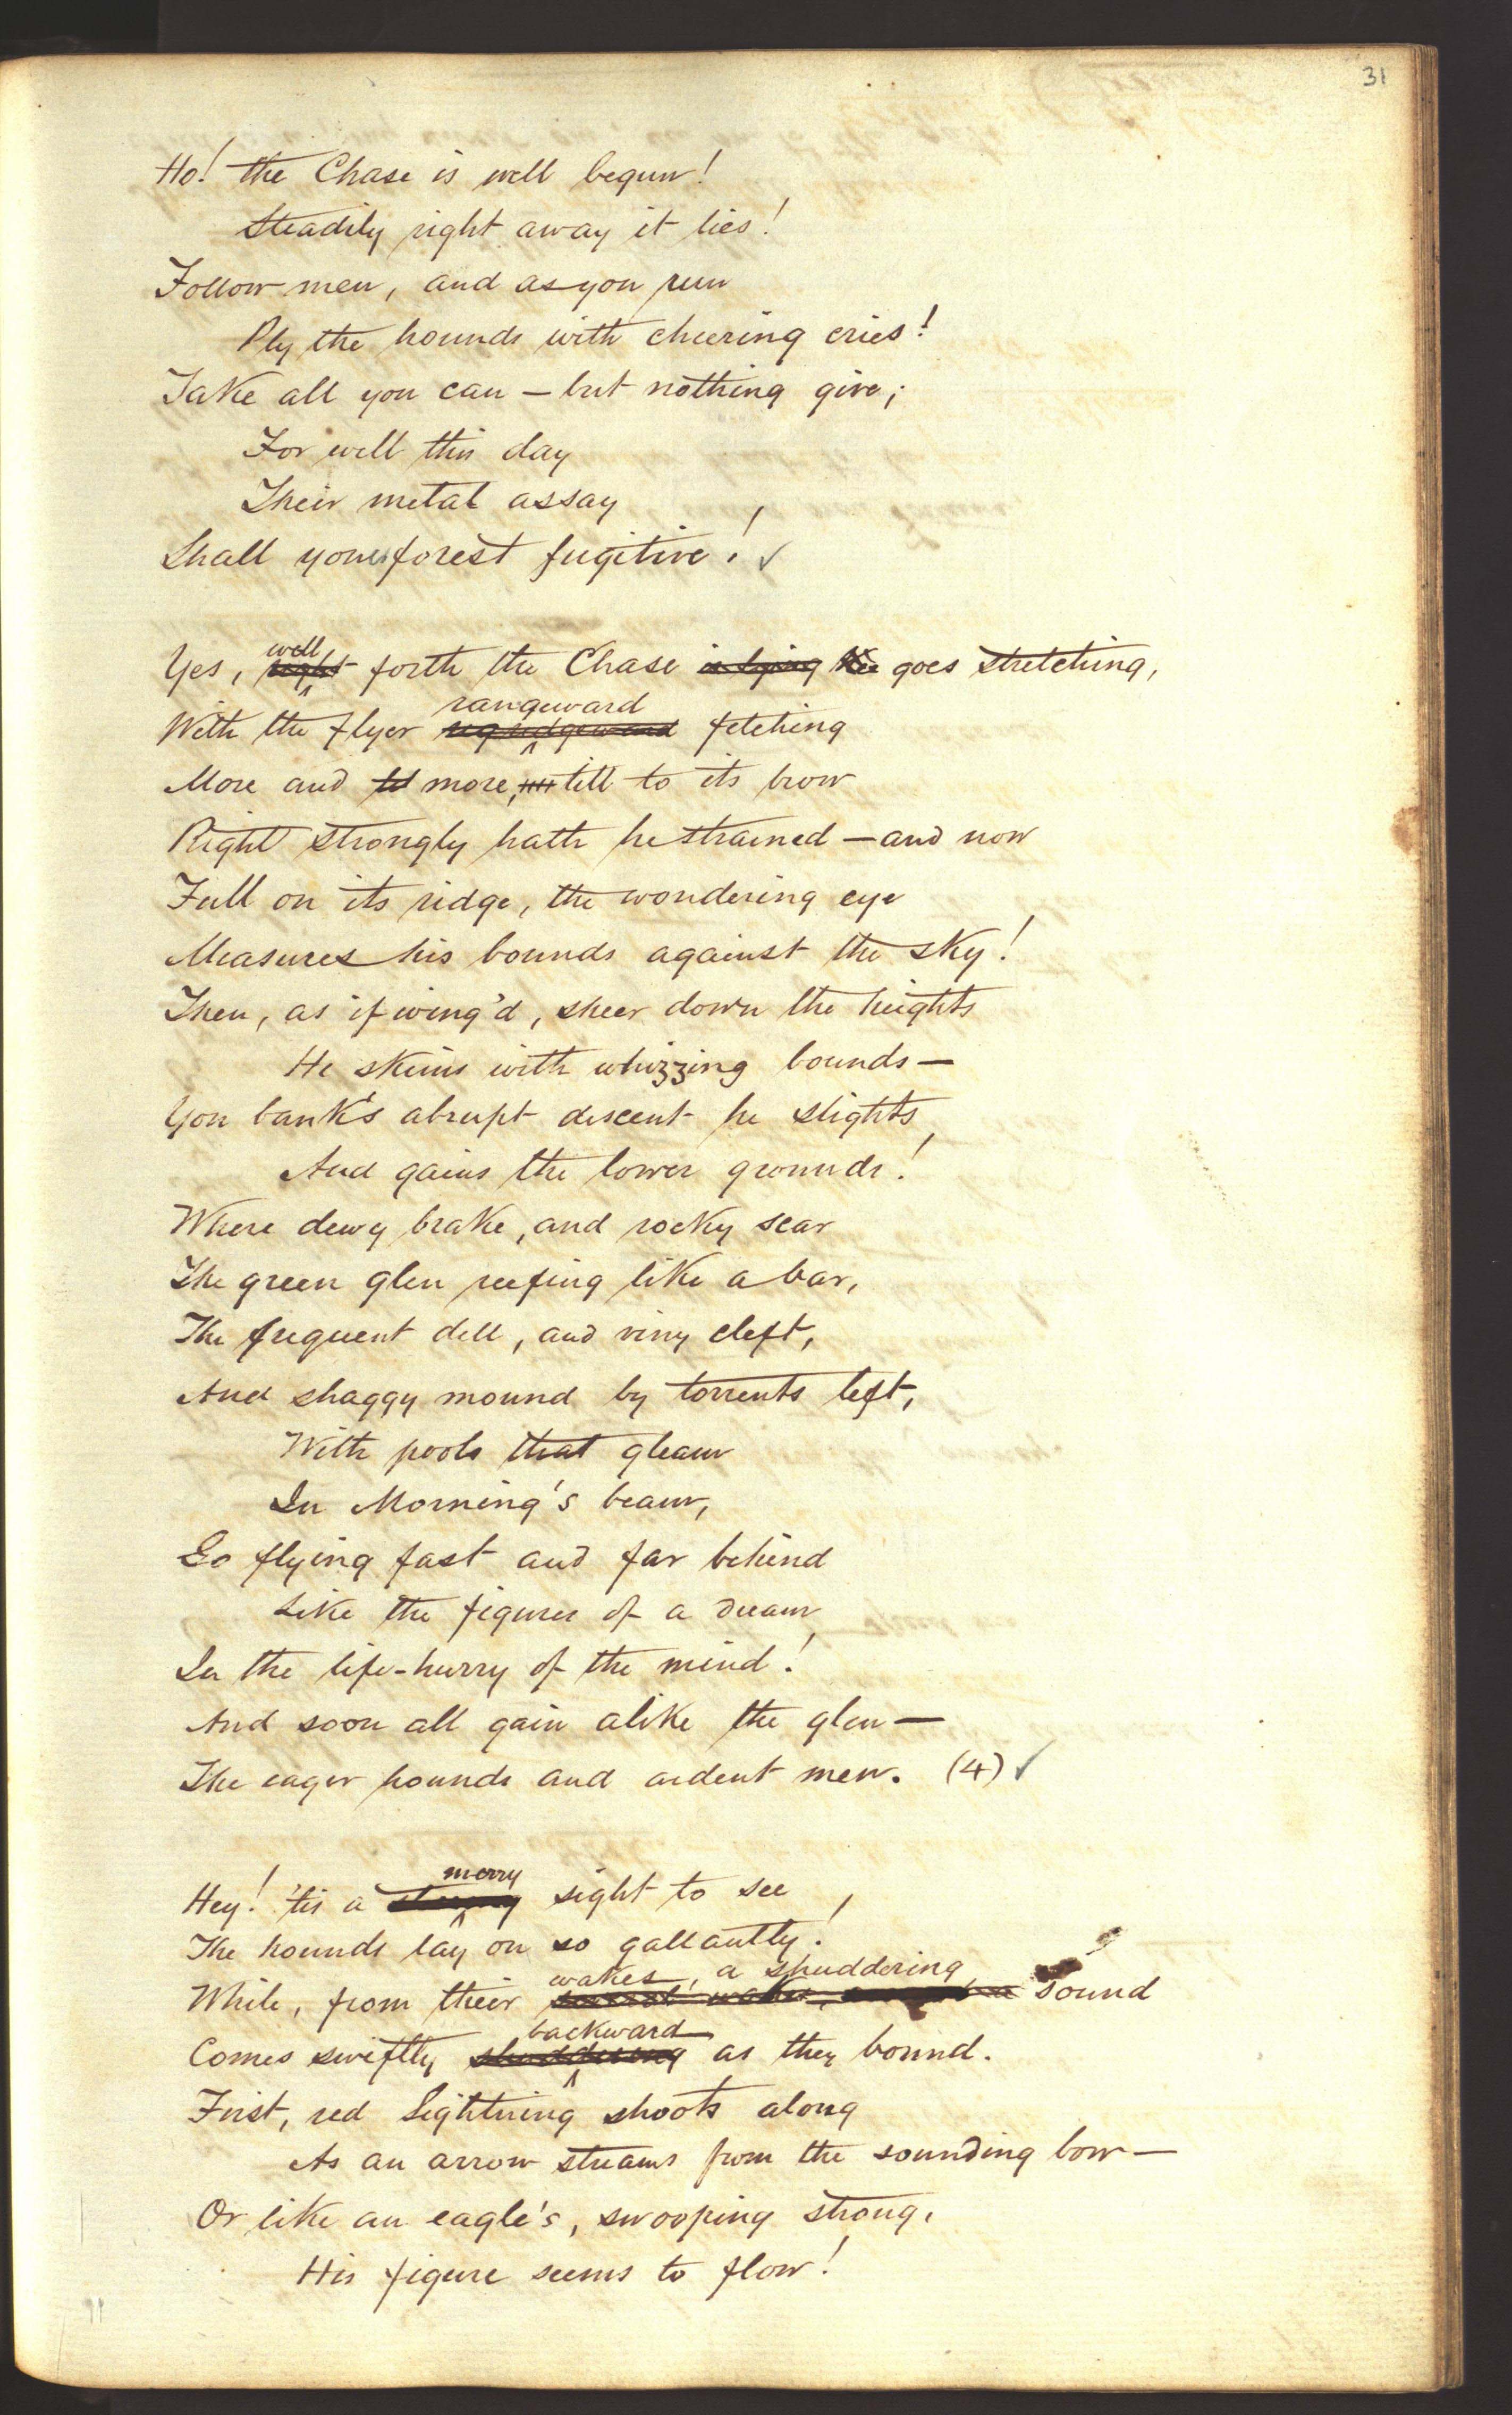 31
Ho! the Chase is well begun!
Steadily right away it lies!
Follow men, and as you run
Ply the hounds with cheering cries!
Take all you can — but nothing give;
For well this day
Their metal assay
Shall yon forest fugitive! ✓
well
Yes, right forth the Chase is lying goes stretching,
rangeward
With the flyer fetching
More and more, till to its brow
Right strongly hath he strained — and now
Full on its ridge, the wondering eye
Measures his bounds against the sky!
Then, as if wing'd, sheer down the heights
He skims with whizzing bounds —
Yon bank's abrupt descent he slights
And gains the lower grounds!
Where dewy brake, and rocky scar
The green glen reefing like a bar,
The frequent dell, and viny cleft,
And shaggy mound by torrents left,
With pools that gleam
In Morning's beam,
Go flying fast and far behind
Like the figures of a dream
In the life-hurry of the mind!
And soon all gain alike the glen —
The eager hounds and ardent men. (4) ✓
merry
Hey! 'tis a sight to see
The hounds lay on so gallantly!
wakes, a shuddering
While, from their several wakes, sound
backward
Comes swiftly shuddering as they bound.
First, red Lightning shoots along
As an arrow streams from the sounding bow —
Or like an eagle's, swooping strong,
His figure seems to flow!